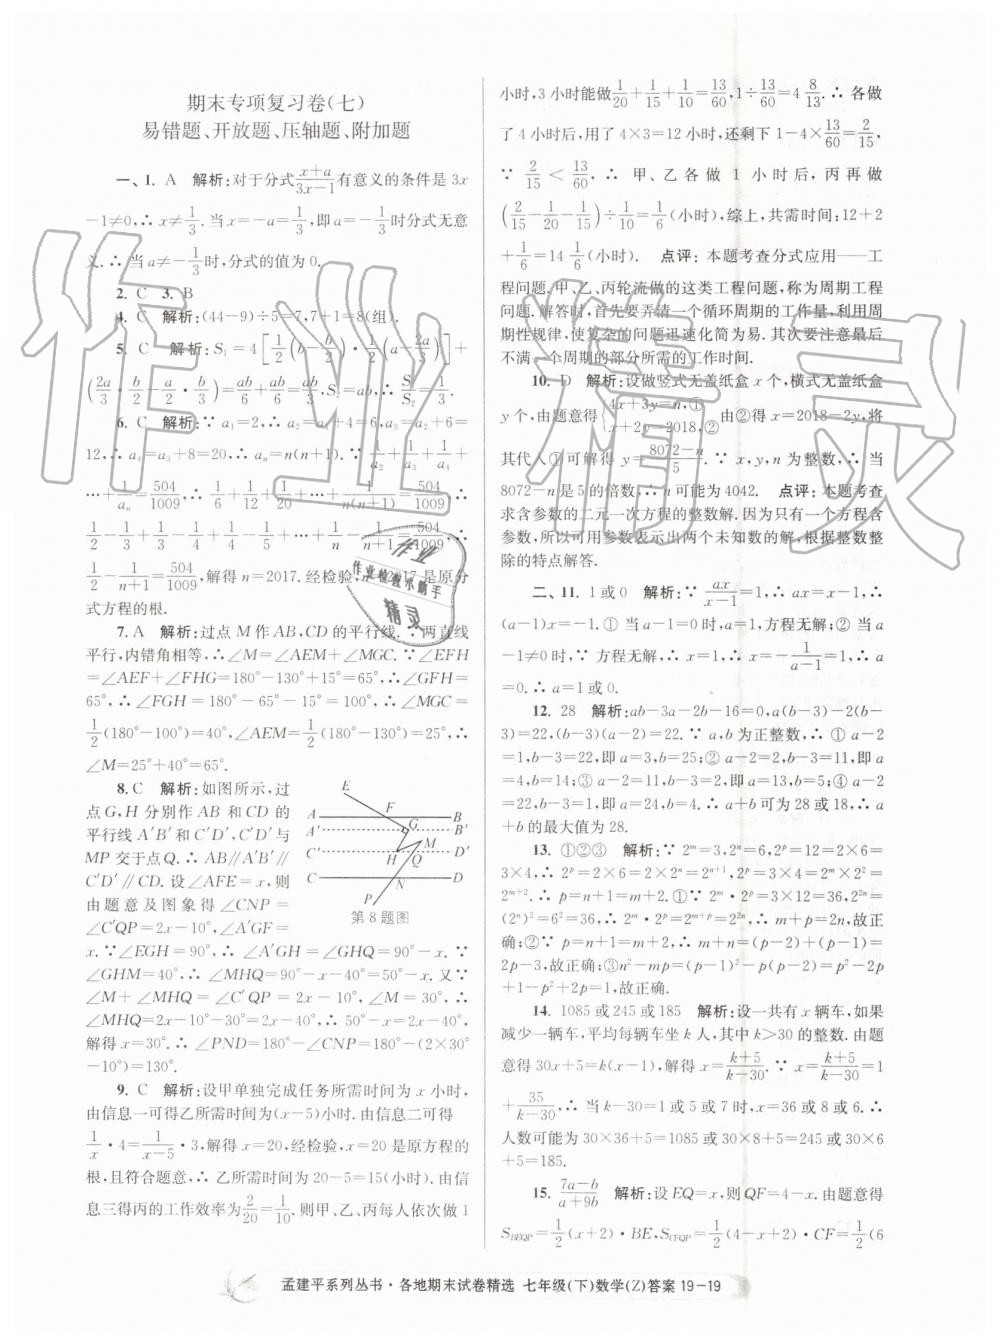 期末专项复习卷(七)
易错题、开放题、压轴题、附加题
一、1. A 解析:对于分式\frac{x+a}{3x-1}有意义的条件是 3x
-1≠0,∴x≠\frac{1}{3}. 当 x=-a=\frac{1}{3},即a=-\frac{1}{3}时分式无意
义.∴当 a≠-\frac{1}{3}时,分式的值为 0.
2. C 3. B
4. C 解析:(44-9)÷5=7,7+1=8(组).
5. C 解析:S₁=4[\frac{1}{2}(b-\frac{b}{2})·\frac{1}{2}(a-\frac{2a}{3})]+
(\frac{2a}{3}·\frac{b}{2}-\frac{a}{2}·\frac{b}{3})=\frac{ab}{6}+\frac{ab}{6}=\frac{ab}{3},S₂=ab,∴\frac{S₁}{S₂}=\frac{1}{3}.
6. C 解析:∵a₁=2,∴a₂=a₁+4=6,∴a₃=a₂+6=
12,∴a₄=a₃+8=20,∴aₙ=n(n+1). ∵\frac{1}{a₂}+\frac{1}{a₃}+\frac{1}{a₄}+
…+\frac{1}{aₙ}=\frac{504}{1009},∴\frac{1}{6}+\frac{1}{12}+\frac{1}{20}+…+\frac{1}{n(n+1)}=\frac{504}{1009},∴
\frac{1}{2}-\frac{1}{3}+\frac{1}{3}-\frac{1}{4}+\frac{1}{4}-\frac{1}{5}+…+\frac{1}{n}-\frac{1}{n+1}=\frac{504}{1009},∴
\frac{1}{2}-\frac{1}{n+1}=\frac{504}{1009},解得 n=2017. 经检验,n=2017 是原分
式方程的根.
7. A 解析:过点 M 作 AB,CD 的平行线.∵两直线
平行,内错角相等,∴∠M=∠AEM+∠MGC.∵∠EFH
=∠AEF+∠FHG=180°-130°+15°=65°,∴∠GFH=
65°,∴∠FGH=180°-65°-15°=100°,∴∠MGC=
\frac{1}{2}(180°-100°)=40°,∠AEM=\frac{1}{2}(180°-130°)=25°,∴
∠M=25°+40°=65°.
8. C 解析:如图所示,过
点 G,H 分别作 AB 和 CD 的
平行线 A′B′和 C′D′,C′D′与
MP 交于点 Q.∴AB∥A′B′∥
C′D′∥CD. 设∠AFE=x,则
由题意及图象得∠CNP=
∠C′QP=2x-10°,∠A′GF=
x.∵∠EGH=90°,∴∠A′GH=∠GHQ=90°-x.∵
∠GHM=40°,∴∠MHQ=90°-x-40°=50°-x.又∵
∠M+∠MHQ=∠C′QP=2x-10°,∠M=30°,∴
∠MHQ=2x-10°-30°=2x-40°,∴50°-x=2x-40°,
解得 x=30°.∴∠PND=180°-∠CNP=180°-(2×30°
-10°)=130°.
E
F
A B
G
A′ B′
M
C′ D′
H Q
C D
N
P
第 8 题图
9. C 解析:设甲单独完成任务所需时间为 x 小时,
由信息一可得乙所需时间为(x-5)小时. 由信息二可得
\frac{1}{x}·4=\frac{1}{x-5}·3,解得 x=20,经检验,x=20 是原方程的
根,且符合题意,∴乙所需时间为 20-5=15(小时). 由信
息三得丙的工作效率为\frac{2}{20}=\frac{1}{10}. 则甲、乙、丙每人依次做 1
小时,3 小时能做\frac{1}{20}+\frac{1}{15}+\frac{1}{10}=\frac{13}{60},1÷\frac{13}{60}=4\frac{8}{13}.∴各做
了 4 小时后,用了 4×3=12 小时,还剩下 1-4×\frac{13}{60}=\frac{2}{15},
∵\frac{2}{15}<\frac{13}{60},∴甲、乙各做 1 小时后,丙再做
(\frac{2}{15}-\frac{1}{20}-\frac{1}{15})÷\frac{1}{10}=\frac{1}{6}(小时),综上,共需时间:12+2
+\frac{1}{6}=14\frac{1}{6}(小时). 点评:本题考查分式应用——工
程问题.甲、乙、丙轮流做的这类工程问题,称为周期工程
问题.解答时,首先要弄清一个循环周期的工作量,利用周
期性规律,使复杂的问题迅速化简为易.其次要注意最后
不满一个周期的部分所需的工作时间.
10. D 解析:设做竖式无盖纸盒 x 个,横式无盖纸盒
y 个,由题意得{4x+3y=n,① x+2y=2018,② 由②得 x=2018-2y,将
其代入①可解得 y=\frac{8072-n}{5}.∵x,y,n 为整数,∴当
8072-n 是 5 的倍数,∴n 可能为 4042. 点评:本题考查
求含参数的二元一次方程的整数解.因为只有一个方程含
参数,所以可用参数表示出两个未知数的解,根据整数整
除的特点解答.
二、11. 1 或 0 解析:∵\frac{ax}{x-1}=1,∴ax=x-1,∴
(a-1)x=-1.① 当 a-1=0 时,a=1,方程无解;② 当 a
-1≠0 时,∵方程无解,∴x=1,∴x=-\frac{1}{a-1}=1,∴a
=0.∴a=1 或 0.
12. 28 解析:ab-3a-2b-16=0,a(b-3)-2(b-
3)=22,(b-3)(a-2)=22.∵a,b 为正整数,∴① a-2
=1,b-3=22,即a=3,b=25;② a-2=2,b-3=11,即a
=4,b=14;③ a-2=11,b-3=2,即a=13,b=5;④ a-2
=22,b-3=1,即a=24,b=4.∴a+b可为 28 或 18,∴a
+b 的最大值为 28.
13. ①②③ 解析:∵2ᵐ=3,2ⁿ=6,2ᵖ=12=2×6=
3×4,∴2ᵖ=2×6=2×2ⁿ=2ⁿ⁺¹,2ᵖ=3×4=2ᵐ×2²=
2ᵐ⁺².∴p=n+1=m+2.①∵2ᵐ·2ᵖ=3×12=36,2²ⁿ=
(2ⁿ)²=6²=36,∴2ᵐ·2ᵖ=2ᵐ⁺ᵖ=2²ⁿ,∴m+p=2n,故正
确;②∵p=n+1=m+2,∴m+n=(p-2)+(p-1)=
2p-3,故正确;③n²-mp=(p-1)²-p(p-2)=p²-2p
+1-p²+2p=1,故正确.
14. 1085 或 245 或 185 解析:设一共有 x 辆车,如果
减少一辆车,平均每辆车坐 k 人,其中 k>30 的整数. 由题
意得 30x+5=k(x-1),解得 x=\frac{k+5}{k-30}.∵x=\frac{k+5}{k-30}=1
+\frac{35}{k-30},∴当 k-30=1 或 5 或 7 时,x=36 或 8 或 6.∴
人数可能为 30×36+5=1085 或 30×8+5=245 或 30×6
+5=185.
15. \frac{7a-b}{a+9b} 解析:设 EQ=x,则 QF=4-x. 由题意得
S_{BEQP}=\frac{1}{2}(x+2)·BE,S_{CFQP}=\frac{1}{2}(4-x+2)·CF=\frac{1}{2}(6
孟建平系列丛书·各地期末试卷精选 七年级(下)数学(Z)答案 19-19
作业精灵
作业
作业检查小助手
精灵